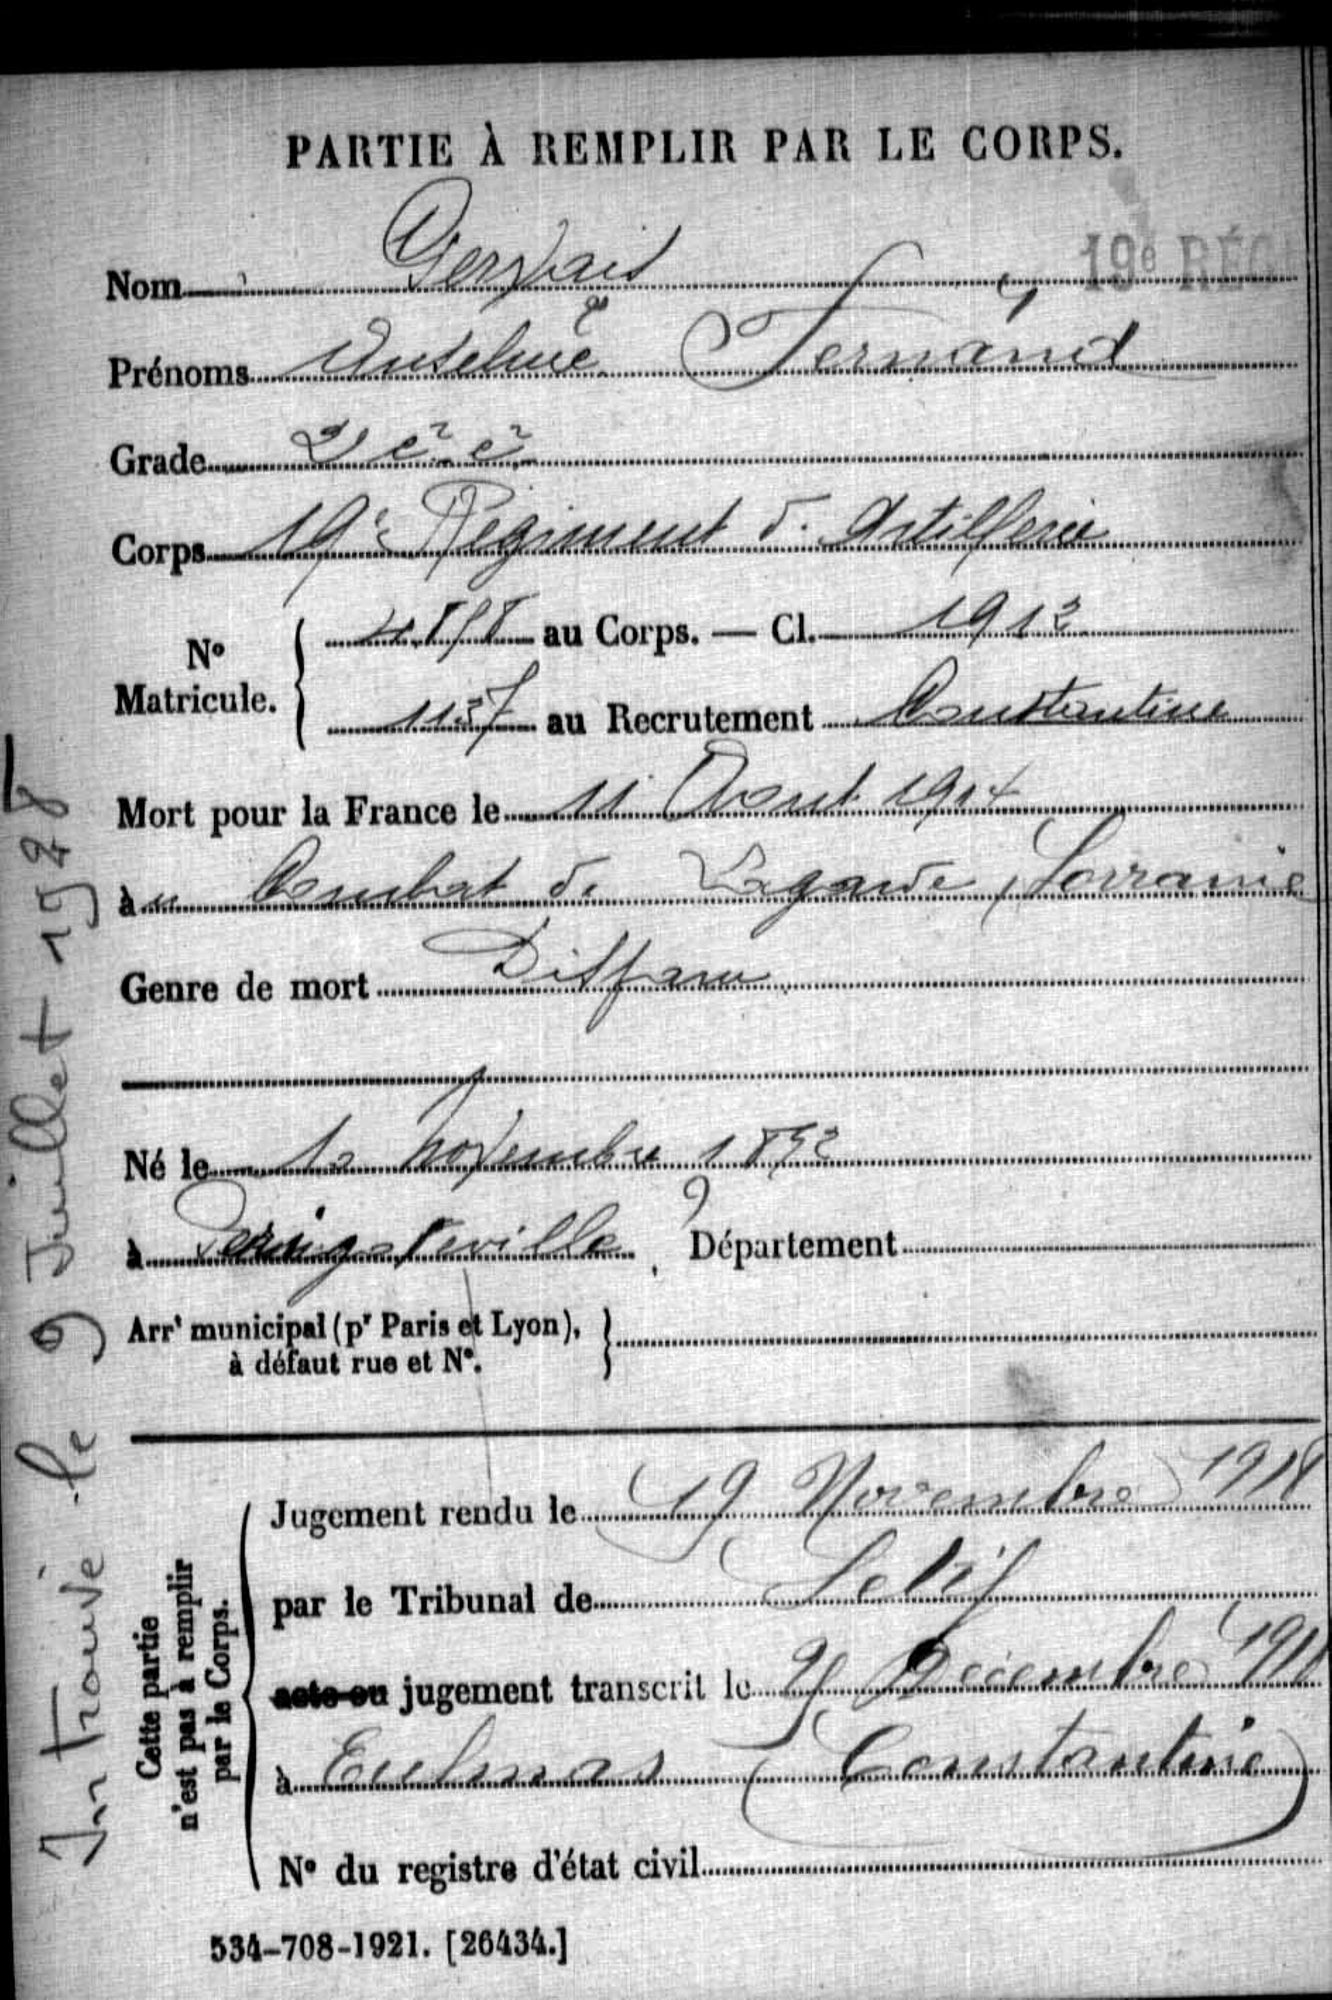 PARTIE À REMPLIR PAR LE CORPS.
19e RÉG
Nom Gervais
Prénoms Anselme Fernand
Grade 2e c
Corps 19e Régiment d. Artillerie
N° Matricule. 4.818 au Corps. — Cl. 1912
1137 au Recrutement Constantine
Mort pour la France le 11 Aout 1914
au Combat de Lagarde, Lorraine
Genre de mort Disparu
Né le 10 novembre 1892
à Périgotville, Département
Arrt municipal (pr Paris et Lyon),
à défaut rue et N°.
Cette partie
n'est pas à remplir
par le Corps.
Jugement rendu le 19 Novembre 1918
par le Tribunal de Sétif
acte ou jugement transcrit le Décembre 1918
à Eulmas (Constantine)
N° du registre d'état civil
534-708-1921. [26434.]
Introuvé le 9 Juillet 1928